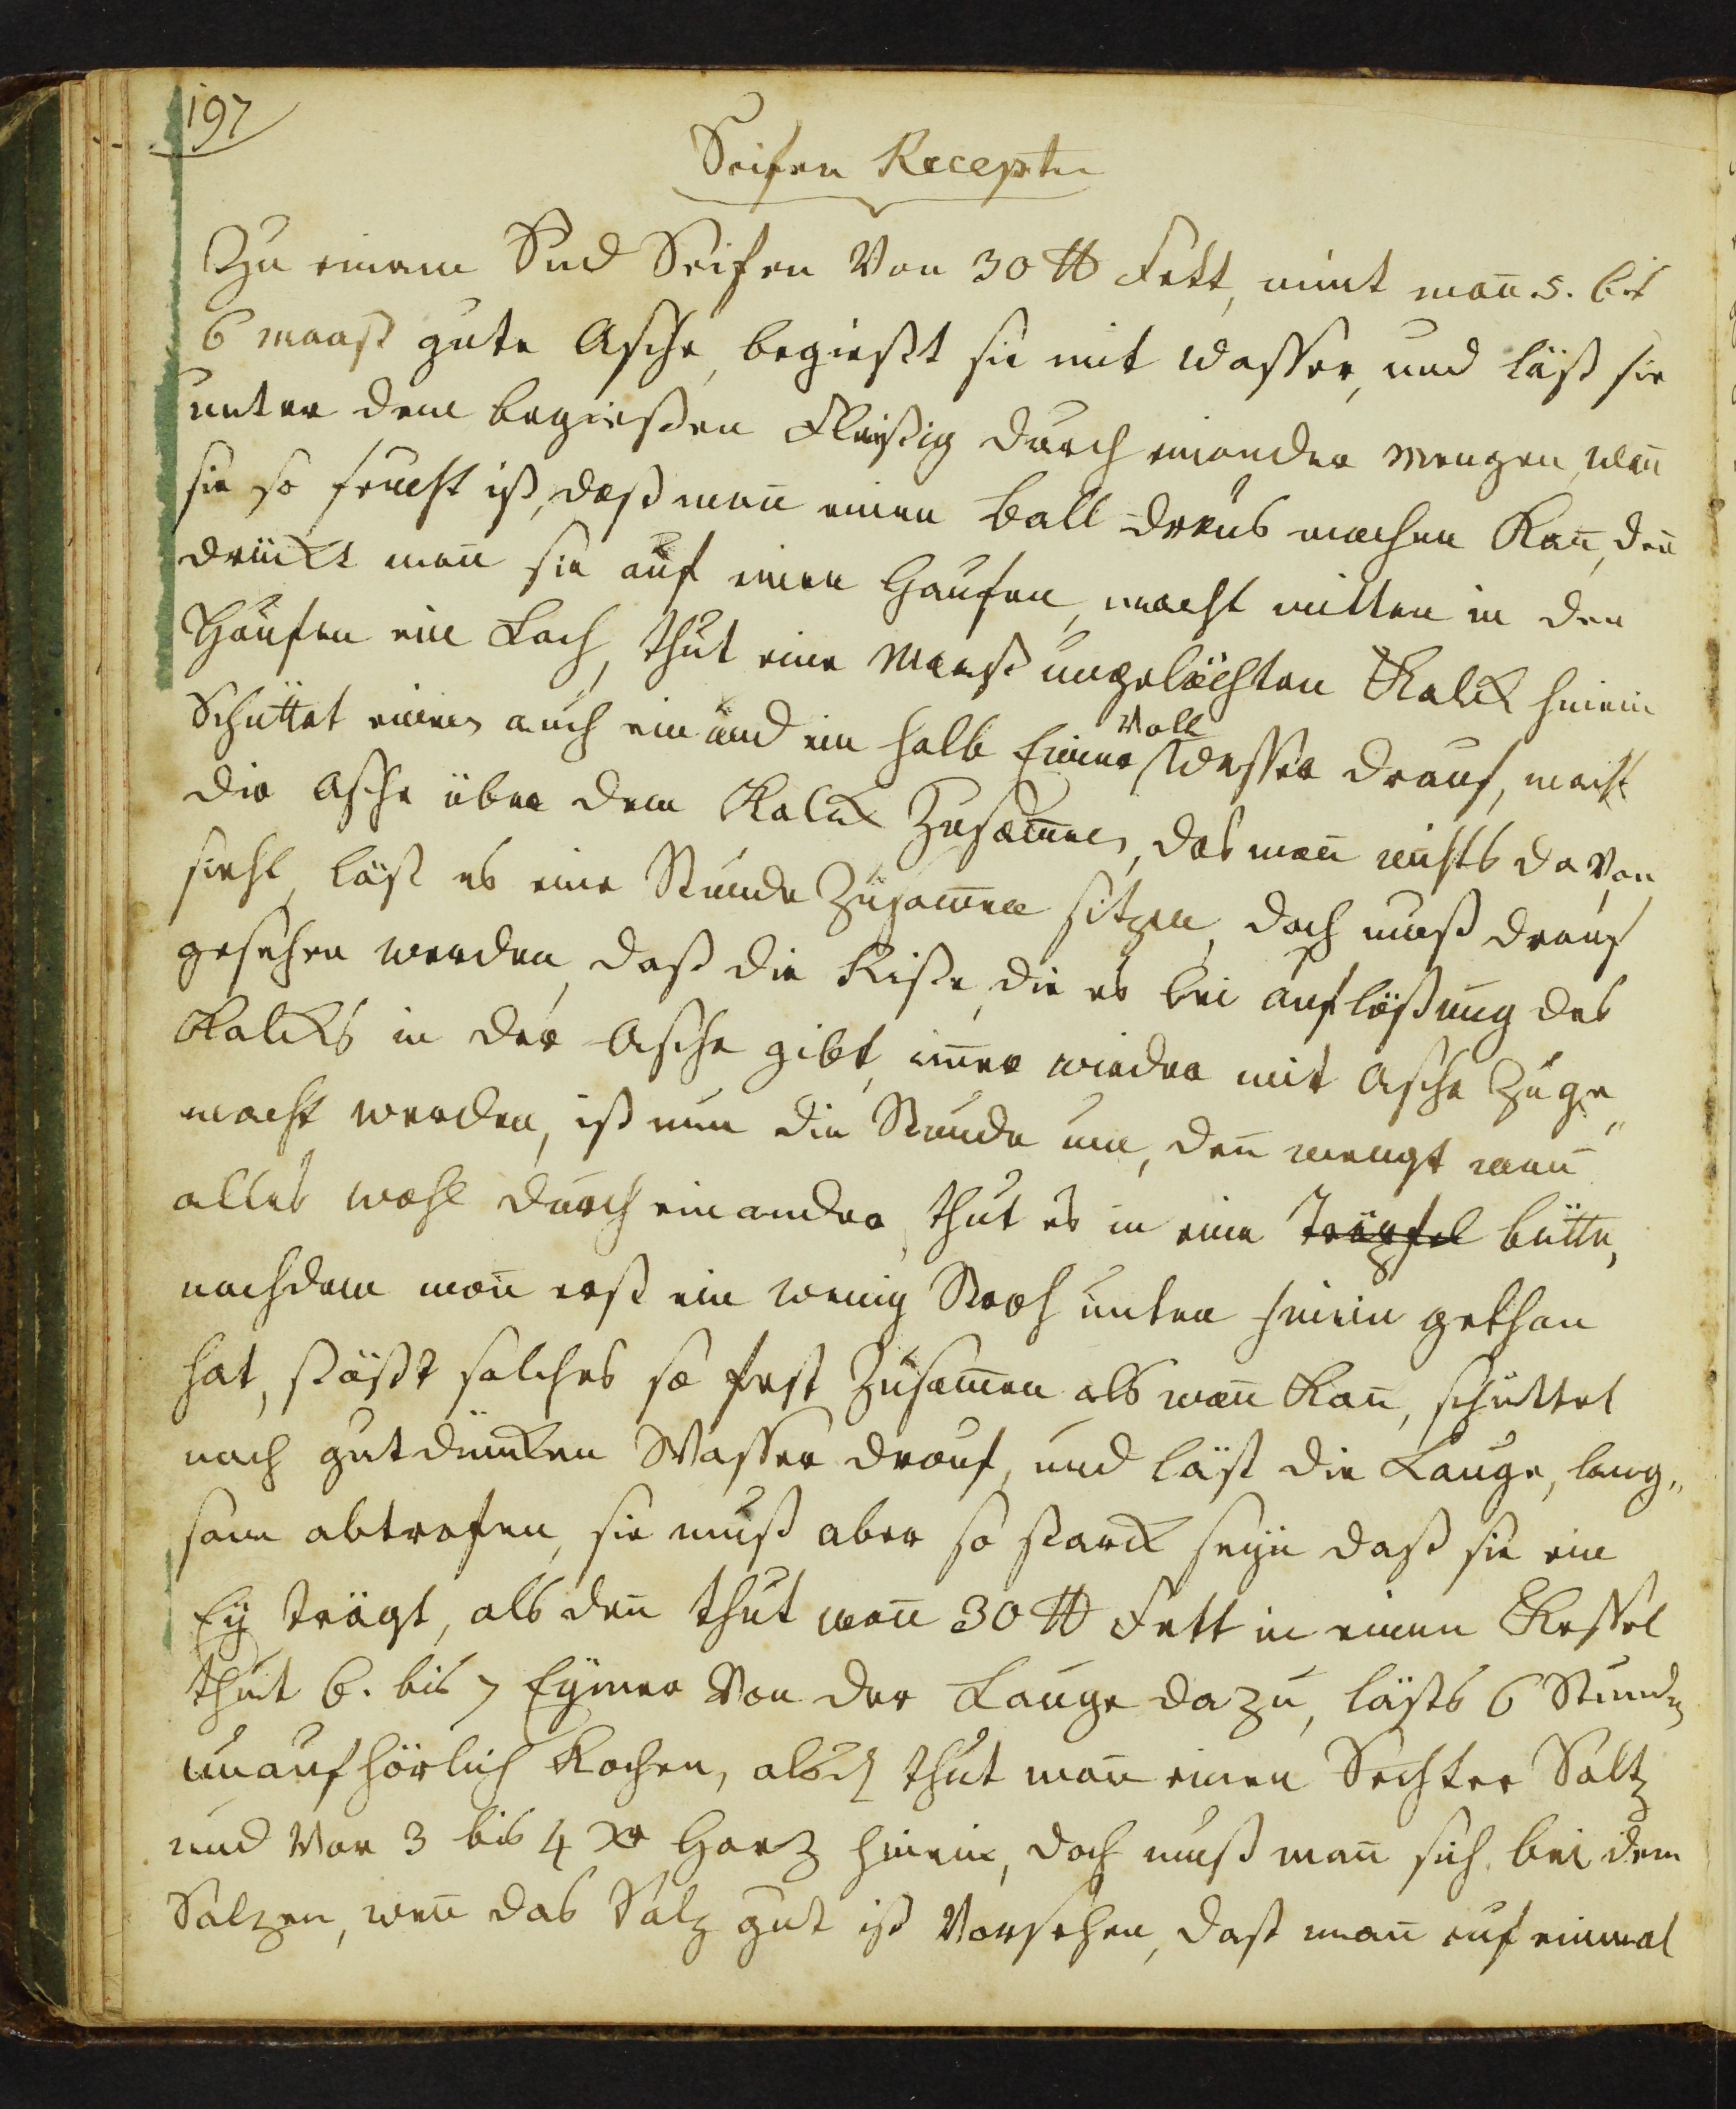 197
Seifen Recepte
Zu einem Sud Seifen Von 30 ℔ Fett, nimt man̄ 5. bis
6 maaß gute Asche, begießt sie mit wasser, und läst sie
unter dem begießen Fleißig durch einander Mengen, wen̄
sie so feucht ist, daß man̄ einen Ball draus machen Kan̄, den̄
drückt man̄ sie auf einen Haufen, macht mitten in den
Haufen ein Loch, thut eine Maaß ungelöschten Kalck hinein
Schüttet einen auch ein und ein halb Eimer Voll Wasser drauf, macht
die Asche über dem Kalck Zusam̄en, das man̄ nichts da Von
sieht, läst es eine Stunde Zusam̄en sitzen, doch muß drauf
gesehen werden, daß die Riße, die es bei auflößung des
Kalcks in der Asche gibt, im̄er wieder mit Asche Zuge„
macht werden, ist nun die Stunde um, den̄ mengt man̄
alles wohl durch einander, thut es in eine Träpfel bütte,
nachdem man̄ erst ein wenig Stroh unten hinein gethan
hat, stößt solches so fest Zusam̄en als man̄ Kan̄, schüttet
nach gutdüncken Wasser drauf, und läst die Lauge, lang„
sam abtrofen, sie muß aber so starck seyn daß sie ein
Ey trägt, als den̄ thut man̄ 30 ℔ Fett in einen Kessel
thut 6. bis 7 Eymer Von der Lauge dazu, läßts 6 Stunden
unaufhörlich Kochen, alsden̄ thut man̄ einen Sechter Saltz
und Vor 3 bis 4 xr Harz hinein, doch muß man̄ sich bei dem
Salzen, wen̄ das Salz gut ist Vorsehen, dast man̄ auf einmal